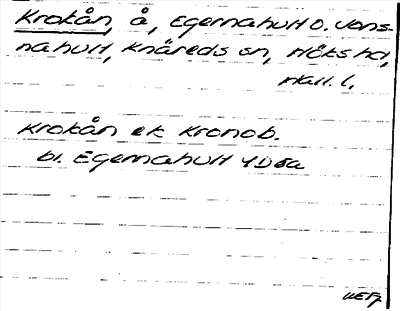 Krokån, å, Egernahult o. Jons-
nahult, Knäreds sn, Höks hd,
Hall. l.
Krokån ek Kronob.
bl. Egernahult 4D8a